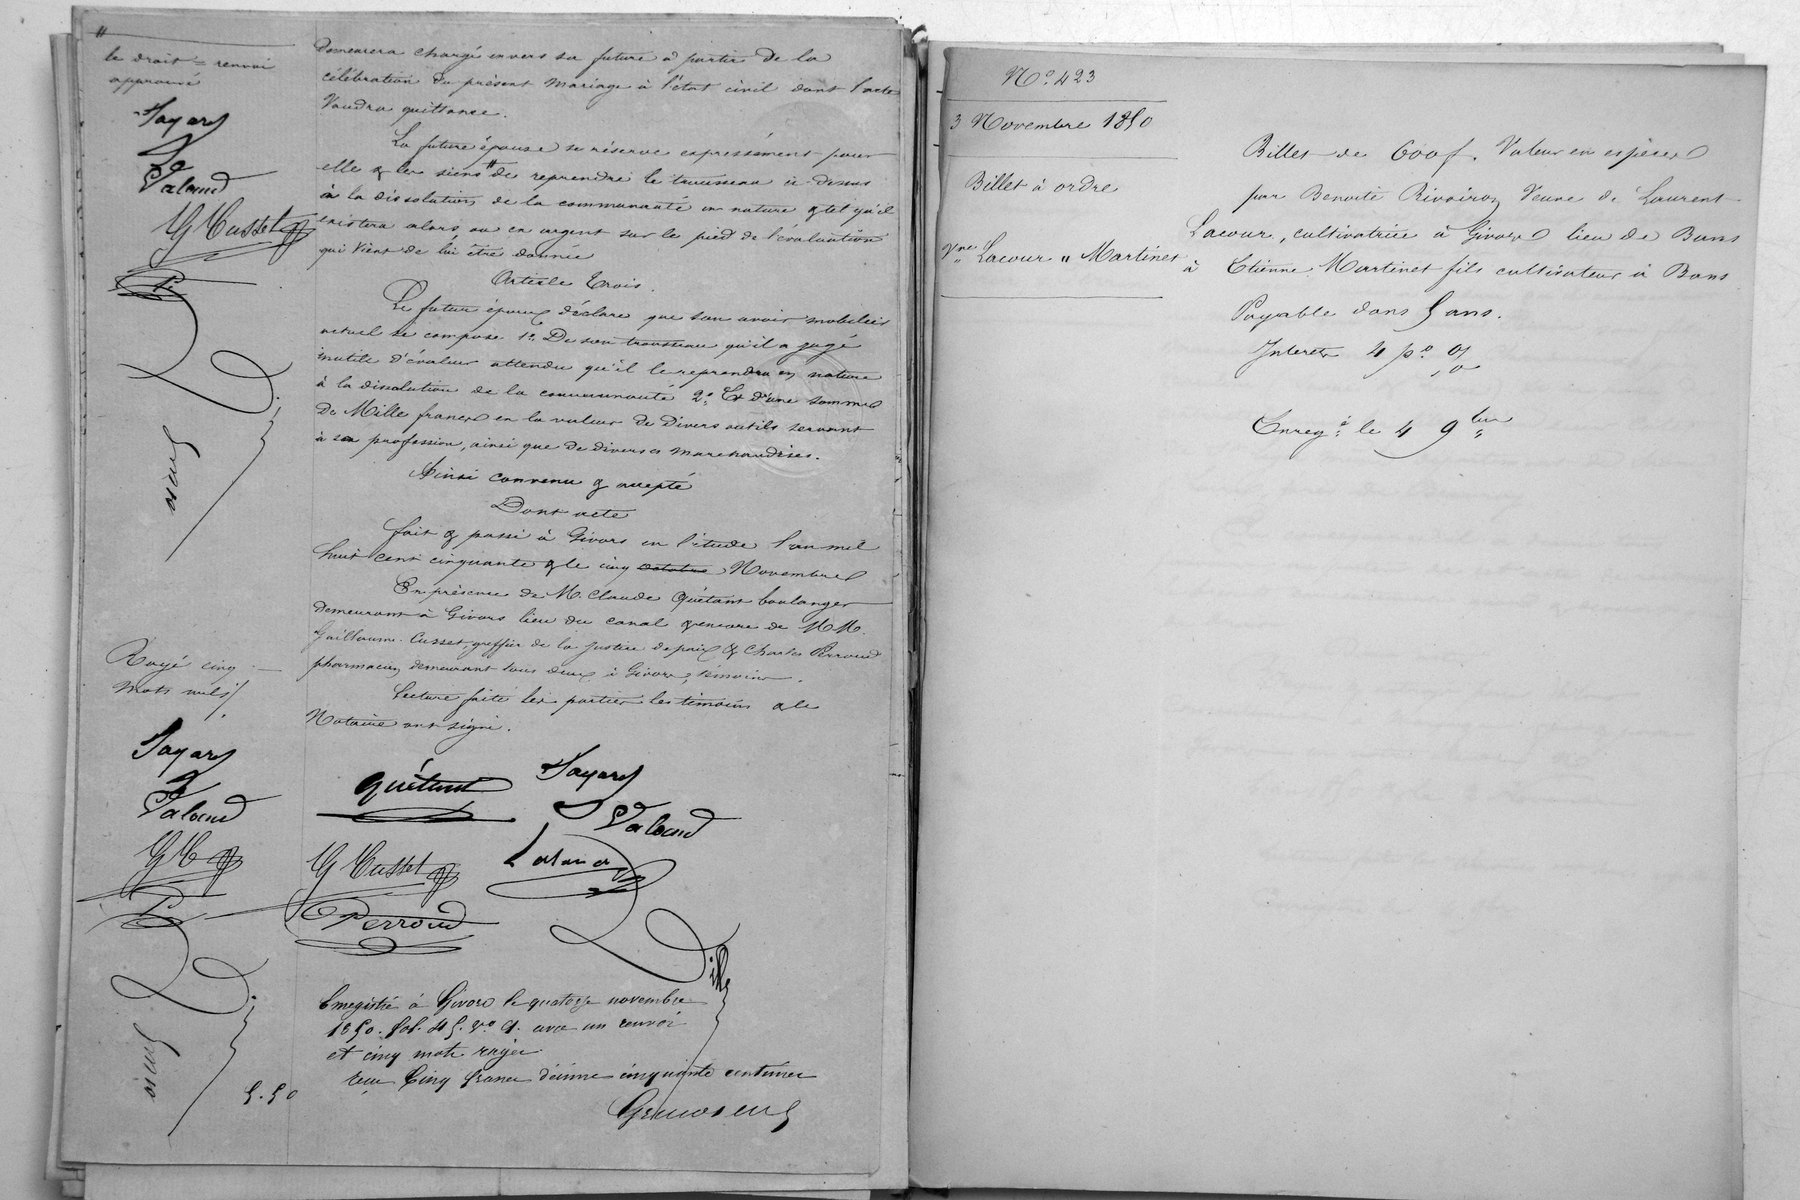 "
le droit = renvoi
approuvé
Fayard
Valoud
G Cusset
P.
demeurera chargé envers sa future à partir de la
célébration du présent mariage à l'état civil dont l'acte
Vaudra quittance.
La future épouse se réserve expressément pour
elle & les siens " de reprendre le trousseau ci-dessus
à la dissolution de la communauté en nature & tel qu'il
existera alors ou en argent sur le pied de l'évaluation
qui vient de lui être donnée
Article Trois.
Le futur époux déclare que son avoir mobilier
actuel se compose 1º De son trousseau qu'il a jugé
inutile d'évaluer attendu qu'il le reprendra en nature
à la dissolution de la communauté 2º Et d'une somme
de Mille francs en la valeur de Divers outils servant
à sa profession, ainsi que de diverses marchandises.
Ainsi convenu & accepté
Dont acte
fait & passé à Givors en l'étude l'an mil
huit cent cinquante & le cinq octobre Novembre
En présence de M. Claude Quétant boulanger
demeurant à Givors lieu du canal & encore de MM.
Guillaume Cusset, greffier de la justice de paix & Charles Perroud
pharmacien demeurant tous deux à Givors, témoins.
Lecture faite les parties les témoins & le
Notaire ont signé.
Rayé cinq
mots nuls
Fayard
Valoud
G C
P.
Quétant
Fayard
Valoud
G Cusset
Perroud
Enregistré à Givors le quatorze novembre
1850. fol. 45. vº 9. avec un renvoi
et cinq mots rayés
reçu Cinq francs décime cinquante centimes
5.50
Nº 423
3 Novembre 1850
Billet à ordre
Vve Lacour " Martinet
Billet de 600f. Valeur en espèces
par Benoite Rivoiron Veuve de Laurent
Lacour, cultivatrice à Givors lieu de Bans
à Etienne Martinet fils cultivateur à Bans
Payable dans 5 ans.
Interets 4 pº %
Enregé le 4 9bre